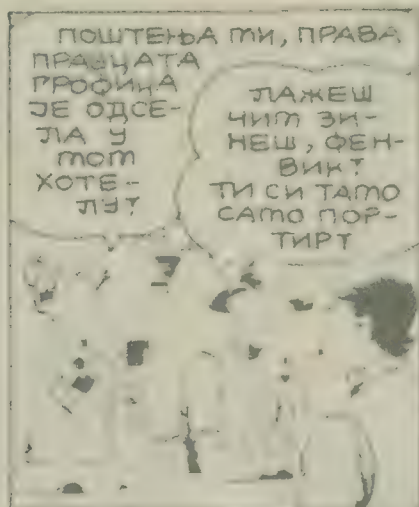 ПОШТЕЊА МИ, ПРАВА
ПРАВЦАТА
ГРОФИЦА
ЈЕ ОДСЕ-
ЛА У
МОМ
ХОТЕ-
ЛУ!
ЛАЖЕШ
ЧИМ ЗИ-
НЕШ, ФЕН-
ВИК!
ТИ СИ ТАМО
САМО ПОР-
ТИР!